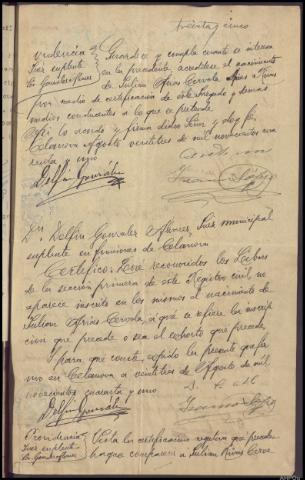 treinta y cinco
Providencia
Juez suplente
Sr. González Álvarez
Guárdese y cumpla cuanto se interesa
en la precedente, acredítese el nacimiento
de Julian Arias Cerviño Arias
por medio de certificación de este Juzgado y demás
medios conducentes a lo que se pretende
Así lo acordó y firma dicho Señor y doy fé,
Celanova Agosto veintitres de mil novecientos cua
renta y uno
Delfín González
D. Delfín Gonzalez Alvarez, Juez municipal
suplente en funciones de Celanova
Certifico: Que reconocidos los Libros
de la sección primera de este Registro civil no
aparece inscrito en los mismos el nacimiento de
Julian Arias a que se refiere la inscrip
cion que precede o sea el exhorto que precede
Para que conste, expido la presente que fir
mo en Celanova a veintitres de Agosto de mil
novecientos cuarenta y uno.
Delfín González
Providencia
Juez suplente
Sr. González Álvarez
Vista la certificación negativa que precede
hágase comparecer a Julian Arias